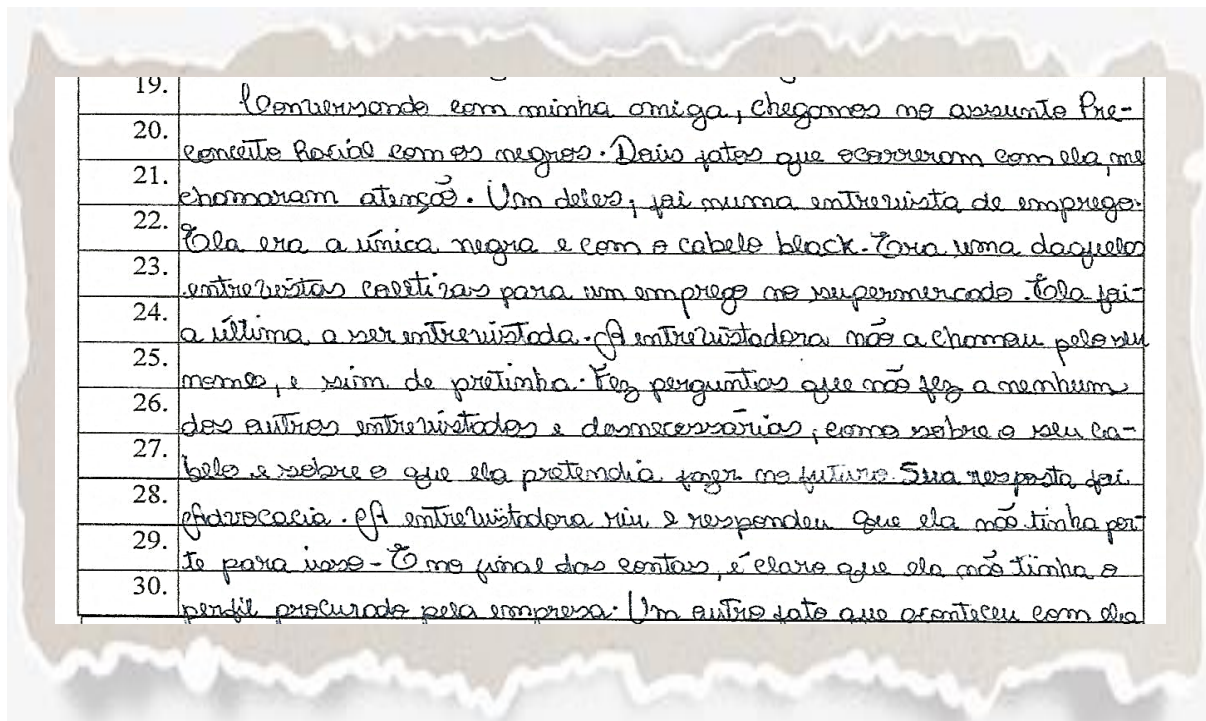 19.
Conversando com minha amiga, chegamos no assunto Pre-
20.
conceito Racial com os negros. Dois fatos que ocorreram com ela, me
21.
chamaram atenção. Um deles, foi numa entrevista de emprego.
22.
Ela era a única negra e com o cabelo black. Era uma daquelas
23.
entrevistas coletivas para um emprego no supermercado. Ela foi
24.
a última a ser entrevistada. A entrevistadora não a chamou pelo seu
25.
nome, e sim de pretinha. Fez perguntas que não fez a nenhum
26.
dos outros entrevistados e desnecessárias, como sobre o seu ca-
27.
belo e sobre o que ela pretendia fazer no futuro. Sua resposta foi
28.
Advocacia. A entrevistadora riu e respondeu que ela não tinha por-
29.
te para isso - E no final das contas, é claro que ela não tinha o
30.
perfil procurado pela empresa. Um outro fato que aconteceu com ela